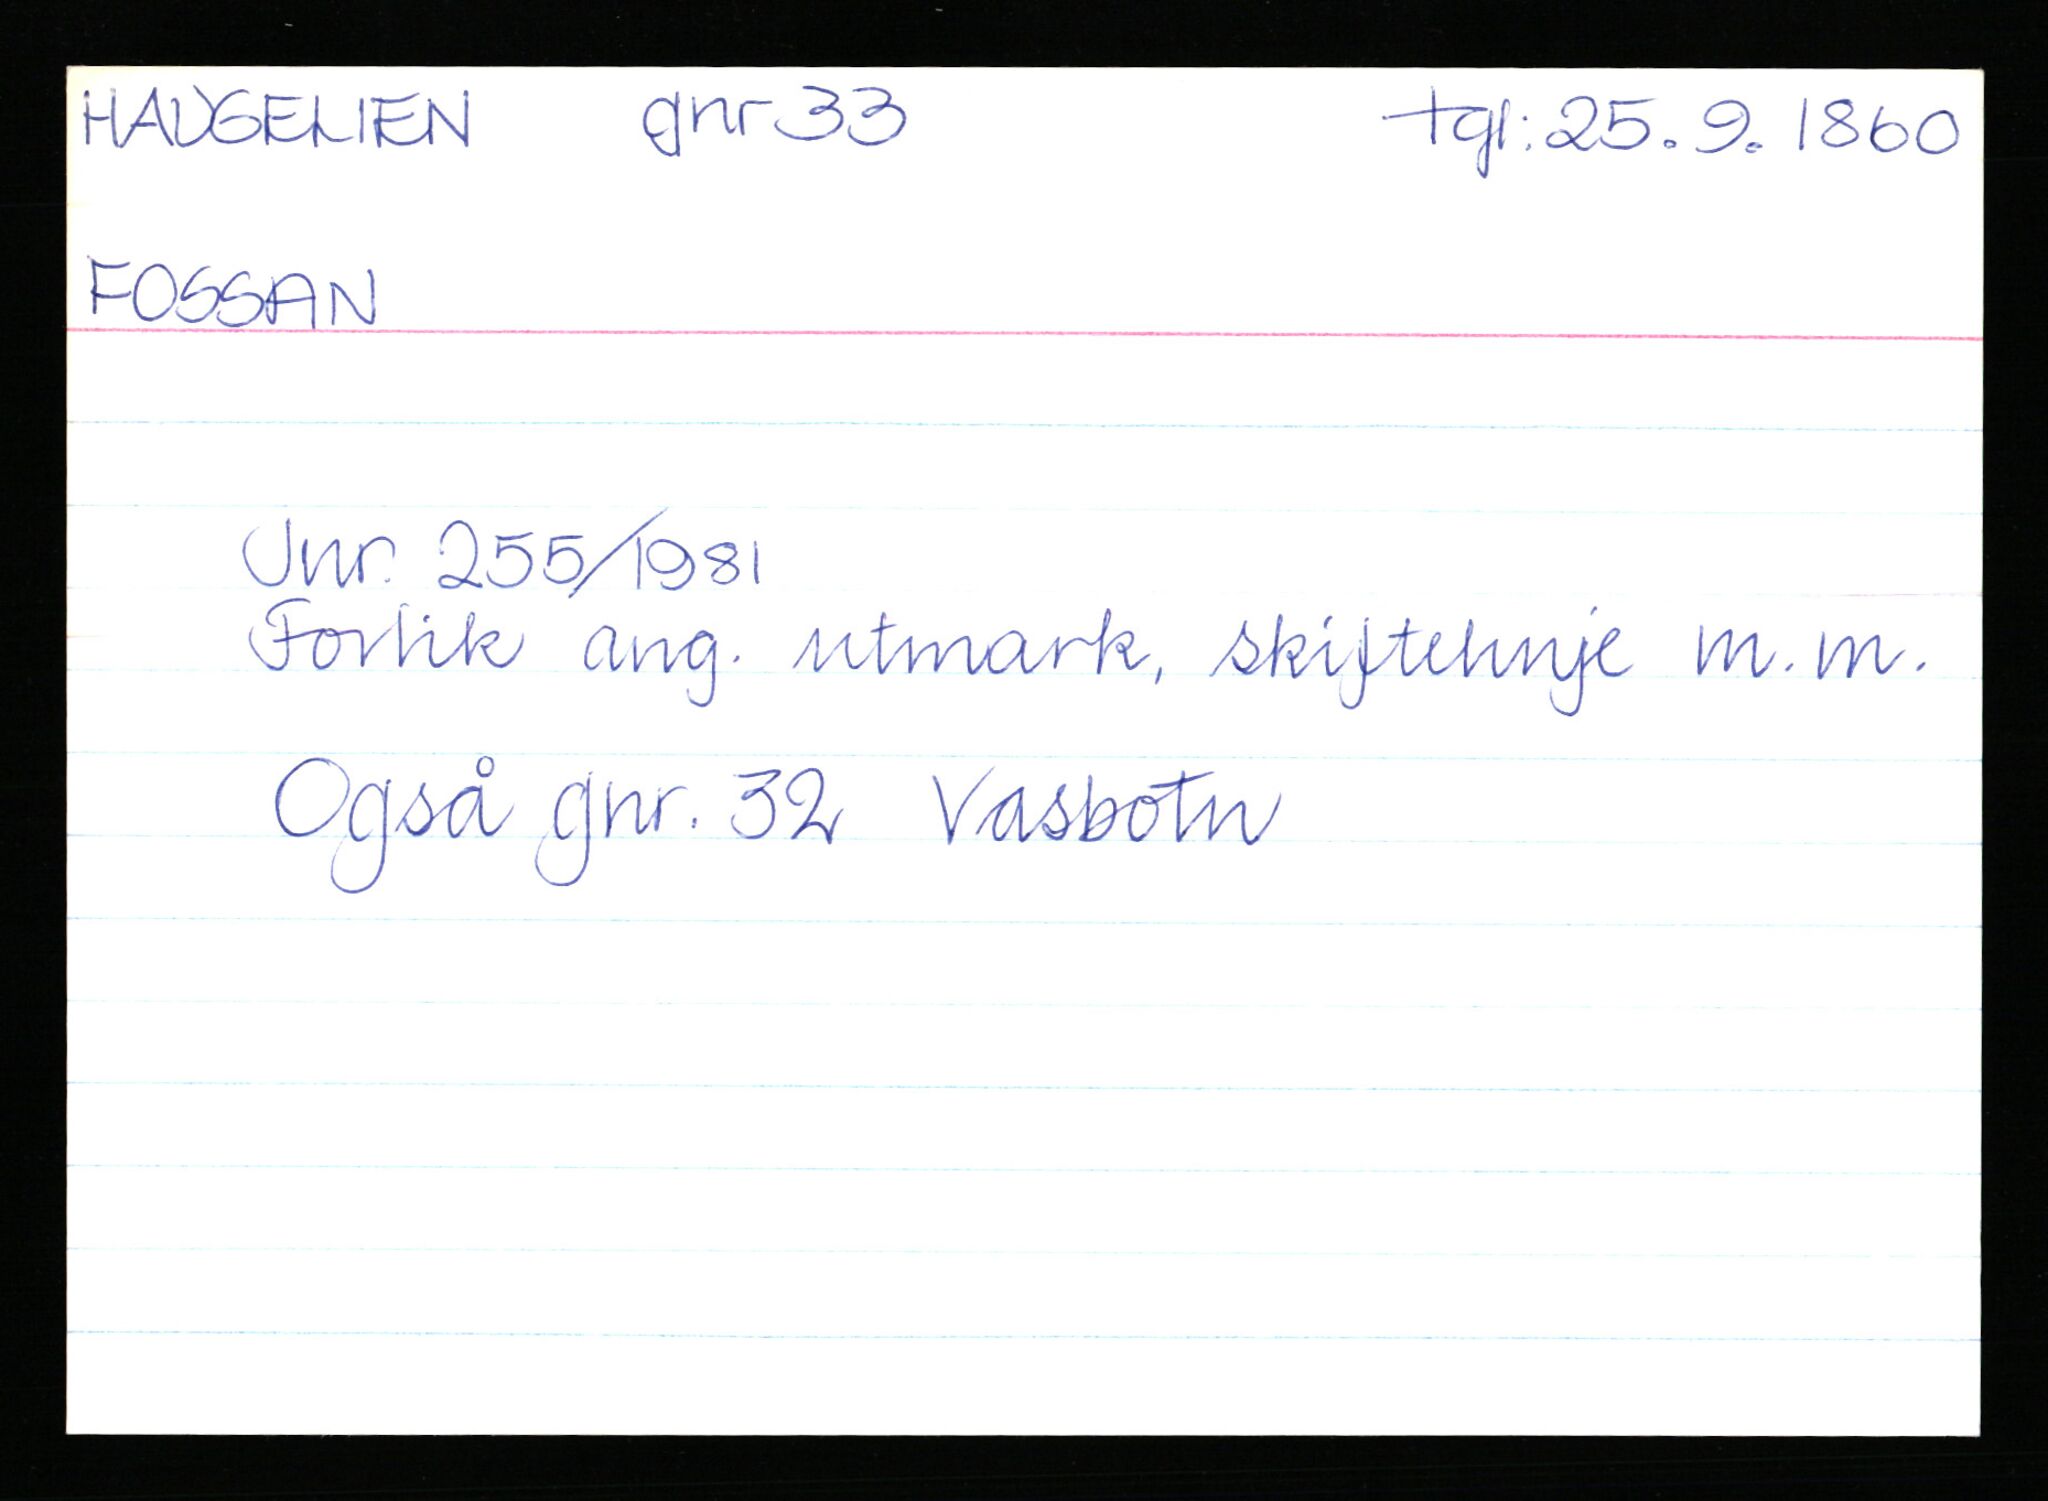 HAUGELIEN gnr 33 tgl: 25. 9. 1860
FOSSAN
Jnr. 255/1981
Forlik ang. utmark, skiftelinje m.m.
Også gnr. 32 Vasbotn